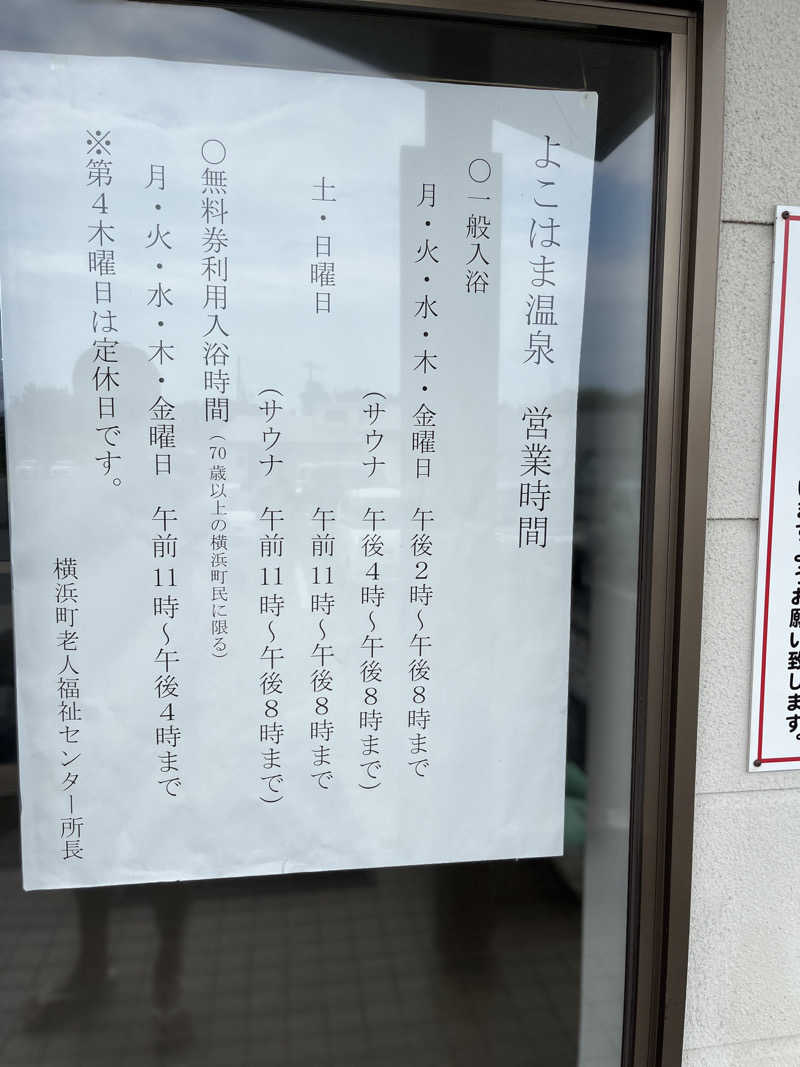 よこはま温泉　営業時間
〇一般入浴
月・火・水・木・金曜日　午後２時～午後８時まで
（サウナ　午後４時～午後８時まで）
土・日曜日　午前11時～午後８時まで
（サウナ　午前11時～午後８時まで）
〇無料券利用入浴時間（70歳以上の横浜町民に限る）
月・火・水・木・金曜日　午前11時～午後４時まで
※第４木曜日は定休日です。
横浜町老人福祉センター所長
お願い致します。